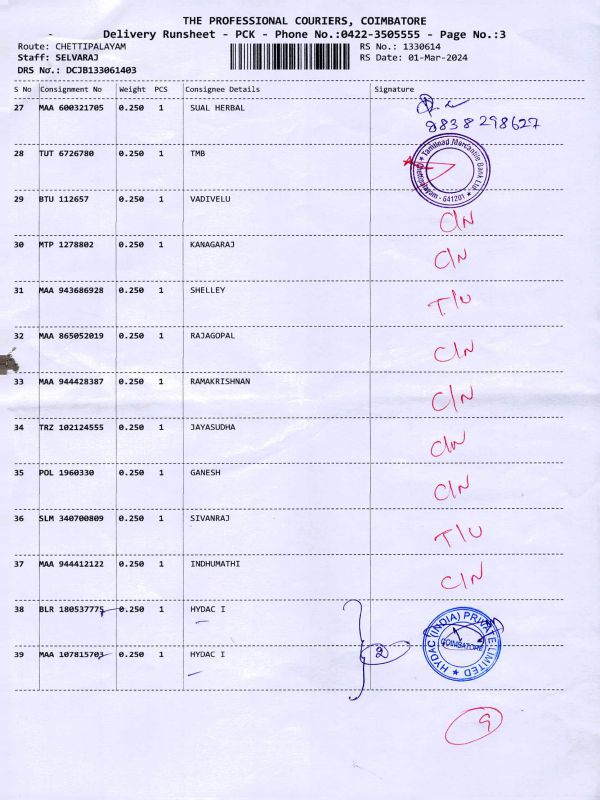 THE PROFESSIONAL COURIERS, COIMBATORE
Delivery Runsheet - PCK - Phone No.:0422-3505555 - Page No.:3
Route: CHETTIPALAYAM RS No.: 1330614
Staff: SELVARAJ RS Date: 01-Mar-2024
DRS No.: DCJB133061403
S No Consignment No Weight PCS Consignee Details Signature
27 MAA 600321705 0.250 1 SUAL HERBAL
8838298627
28 TUT 6726780 0.250 1 TMB
Tamilnad Mercantile Bank Ltd
641201
29 BTU 112657 0.250 1 VADIVELU C/N
30 MTP 1278802 0.250 1 KANAGARAJ C/N
31 MAA 943686928 0.250 1 SHELLEY T/U
32 MAA 865052019 0.250 1 RAJAGOPAL C/N
33 MAA 944428387 0.250 1 RAMAKRISHNAN C/N
34 TRZ 102124555 0.250 1 JAYASUDHA C/N
35 POL 1960330 0.250 1 GANESH C/N
36 SLM 340700809 0.250 1 SIVANRAJ T/U
37 MAA 944412122 0.250 1 INDHUMATHI C/N
38 BLR 180537775 0.250 1 HYDAC I
HYDAC (INDIA) PRIVATE LIMITED
COIMBATORE
2
39 MAA 107815703 0.250 1 HYDAC I
9